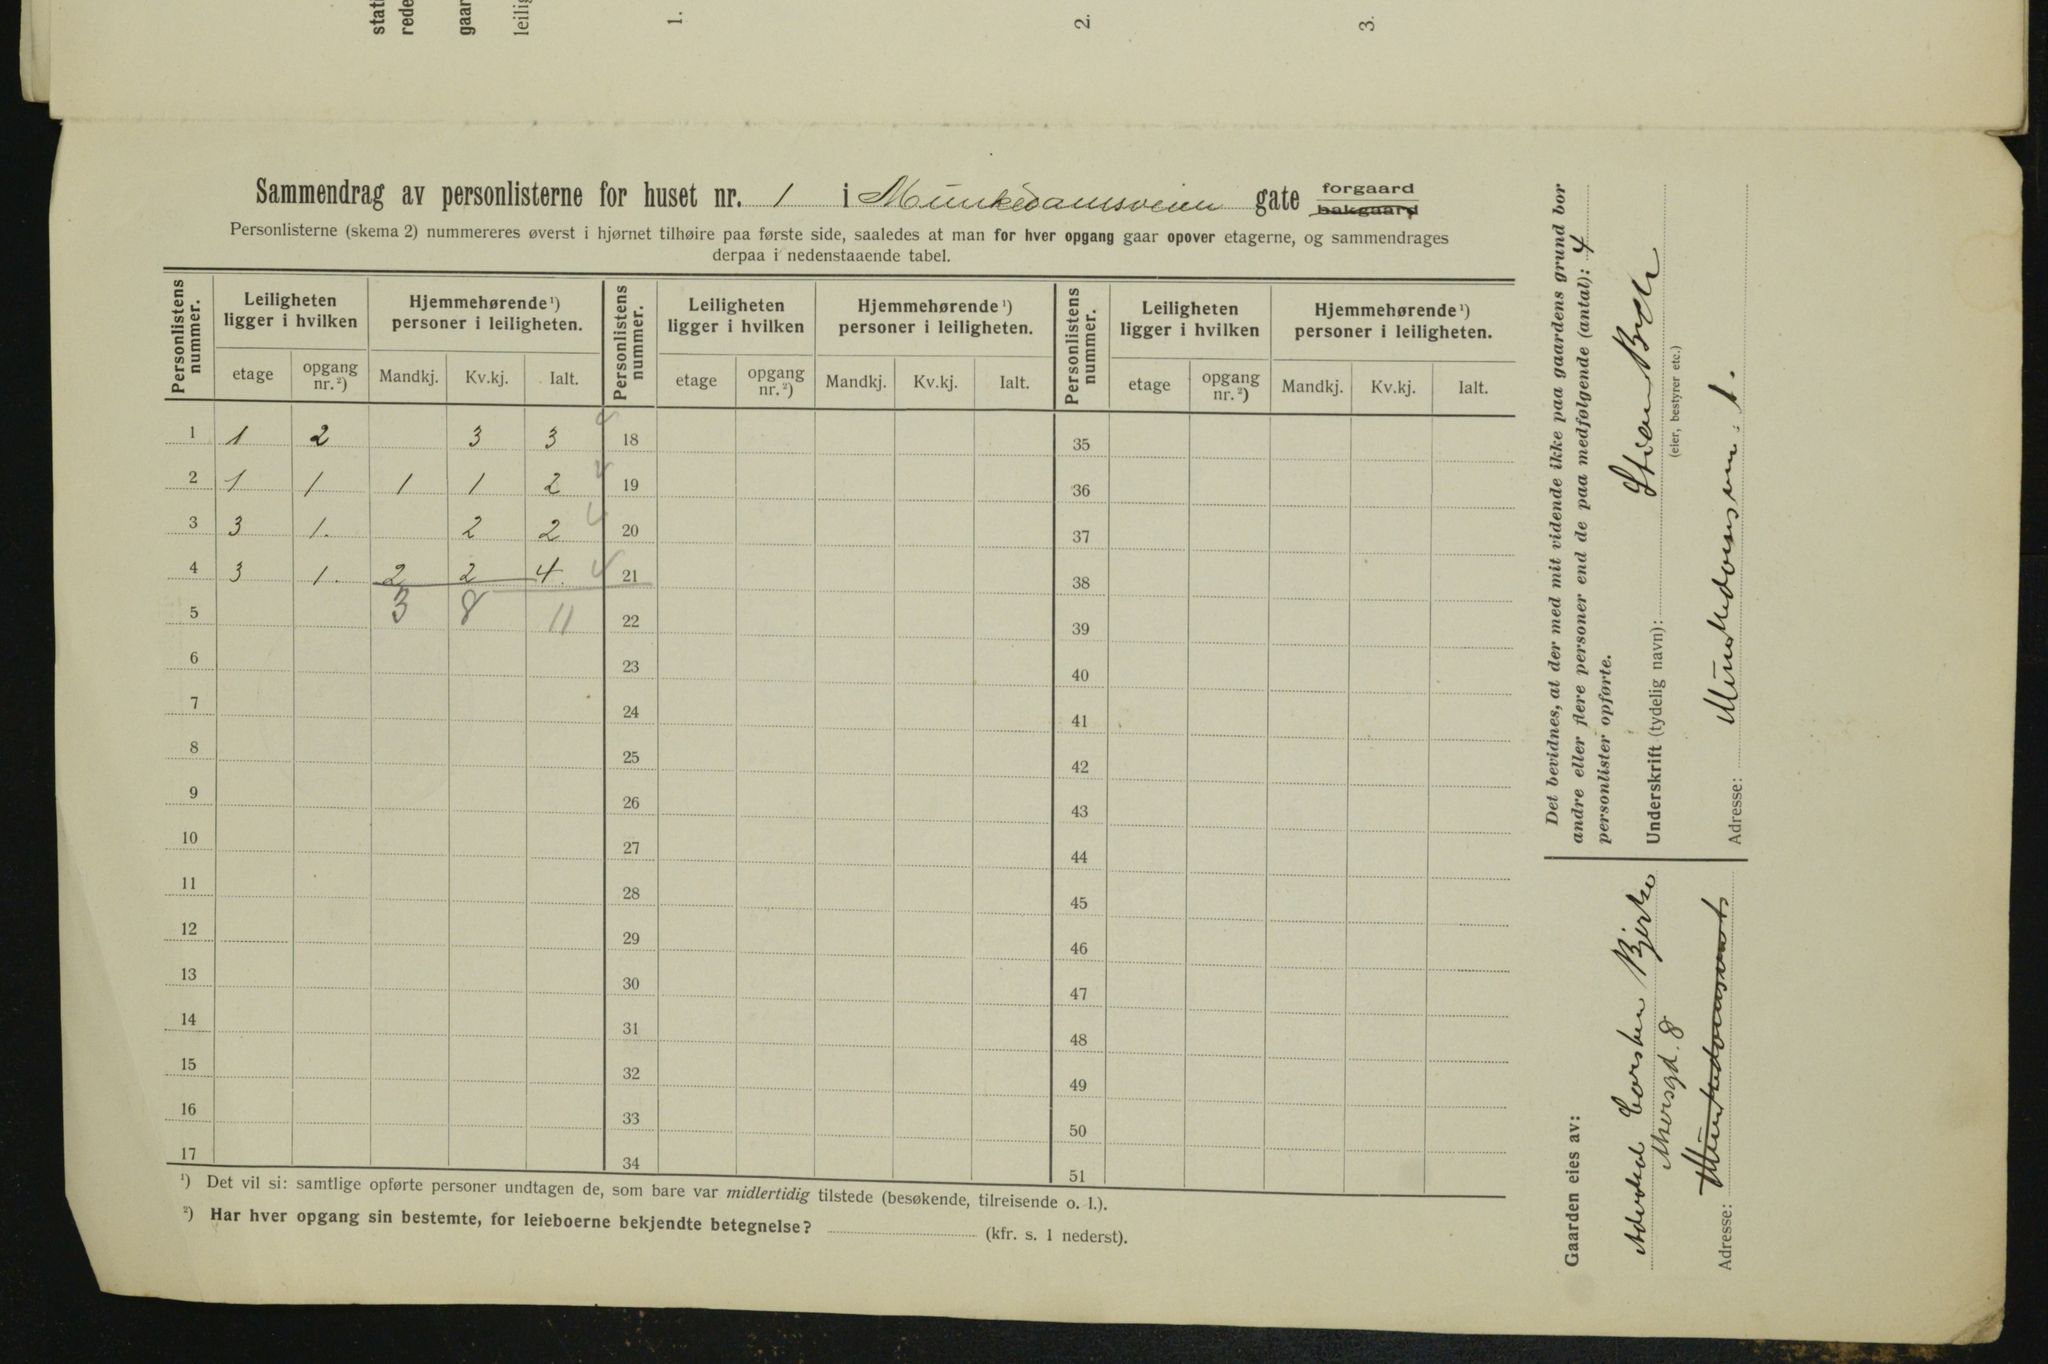 stati
rede
gaar
leilig
1.
2.
3.
Sammendrag av personlisterne for huset nr. 1 i Munkedamsveien gate forgaard
bakgaard
Personlisterne (skema 2) nummereres øverst i hjørnet tilhøire paa første side, saaledes at man for hver opgang gaar opover etagerne, og sammendrages
derpaa i nedenstaaende tabel.
Personlistens nummer. Leiligheten ligger i hvilken Hjemmehørende¹) personer i leiligheten. Personlistens nummer. Leiligheten ligger i hvilken Hjemmehørende¹) personer i leiligheten. Personlistens nummer. Leiligheten ligger i hvilken Hjemmehørende¹) personer i leiligheten.
etage opgang nr.²) Mandkj. Kv.kj. Ialt. etage opgang nr.²) Mandkj. Kv.kj. Ialt. etage opgang nr.²) Mandkj. Kv.kj. Ialt.
1 1 2 3 3 18 35
2 1 1 1 1 2 19 36
3 3 1. 2 2 20 37
4 3 1. 2 2 4. 21 38
5 3 8 11 22 39
6 23 40
7 24 41
8 25 42
9 26 43
10 27 44
11 28 45
12 29 46
13 30 47
14 31 48
15 32 49
16 33 50
17 34 51
¹) Det vil si: samtlige opførte personer undtagen de, som bare var midlertidig tilstede (besøkende, tilreisende o. l.).
²) Har hver opgang sin bestemte, for leieboerne bekjendte betegnelse? (kfr. s. 1 nederst).
Det bevidnes, at der med mit vidende ikke paa gaardens grund bor
andre eller flere personer end de paa medfølgende (antal): 4
personlister opførte.
Underskrift (tydelig navn):
(eier, bestyrer etc.)
Adresse: Munkedamsvn. 1.
Gaarden eies av:
Advokat Carsten Bjerke
8
Adresse: Munkedamsvn 1